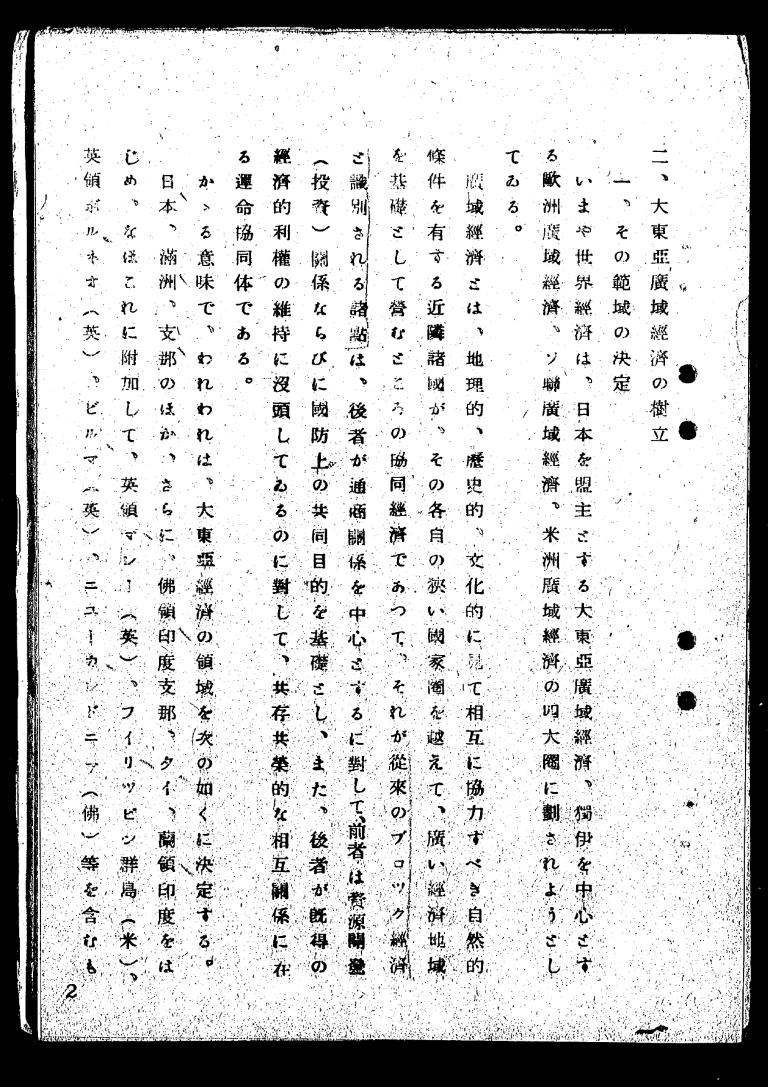 二、大東亞廣域經濟の樹立
一、その範域の決定
いまや世界經濟は、日本を盟主とする大東亞廣域經濟、獨伊を中心とす
る歐洲廣域經濟、ソ聯廣域經濟、米洲廣域經濟の四大圈に劃されようとし
てゐる。
廣域經濟とは、地理的、歷史的、文化的に見て相互に協力すべき自然的
條件を有する近隣諸國が、その各自の狹い國家圈を越えて、廣い經濟地域
を基礎として營むところの協同經濟であつて、それが從來のブロツク經濟
と識別される諸點は、後者が通商關係を中心とするに對して、前者は資源開發
(投資)關係ならびに國防上の共同目的を基礎とし、また、後者が既得の
經濟的利權の維持に沒頭してゐるのに對して、共存共榮的な相互關係に在
る運命協同体である。
かゝる意味で、われわれは、大東亞經濟の領域を次の如くに決定する。
日本、滿洲、支那のほか、さらに、佛領印度支那、タイ、蘭領印度をは
じめ、なほこれに附加して、英領マレー(英)、フイリツピン群島(米)、
英領ボルネオ(英)、ビルマ(英)、ニユーカレドニア(佛)等を含むも
2